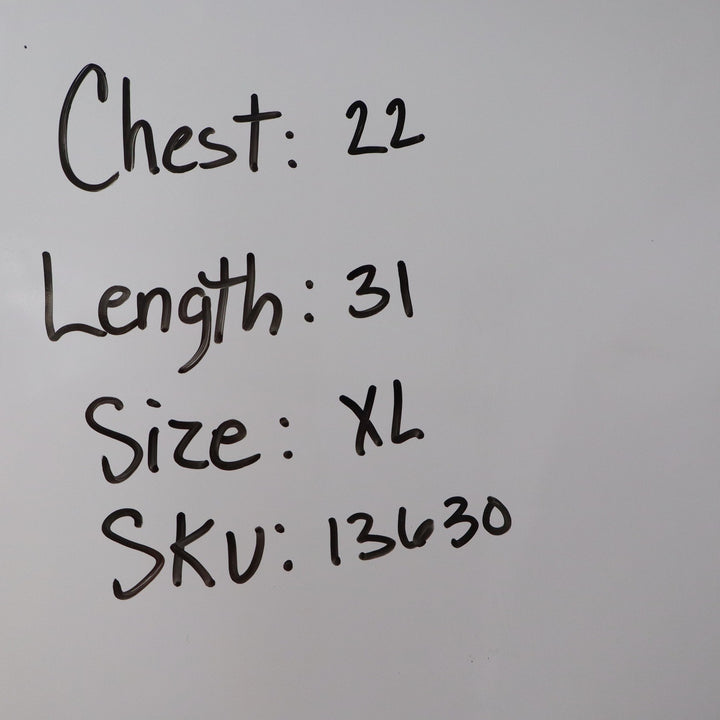 Chest: 22
Length: 31
Size: XL
SKU: 13630